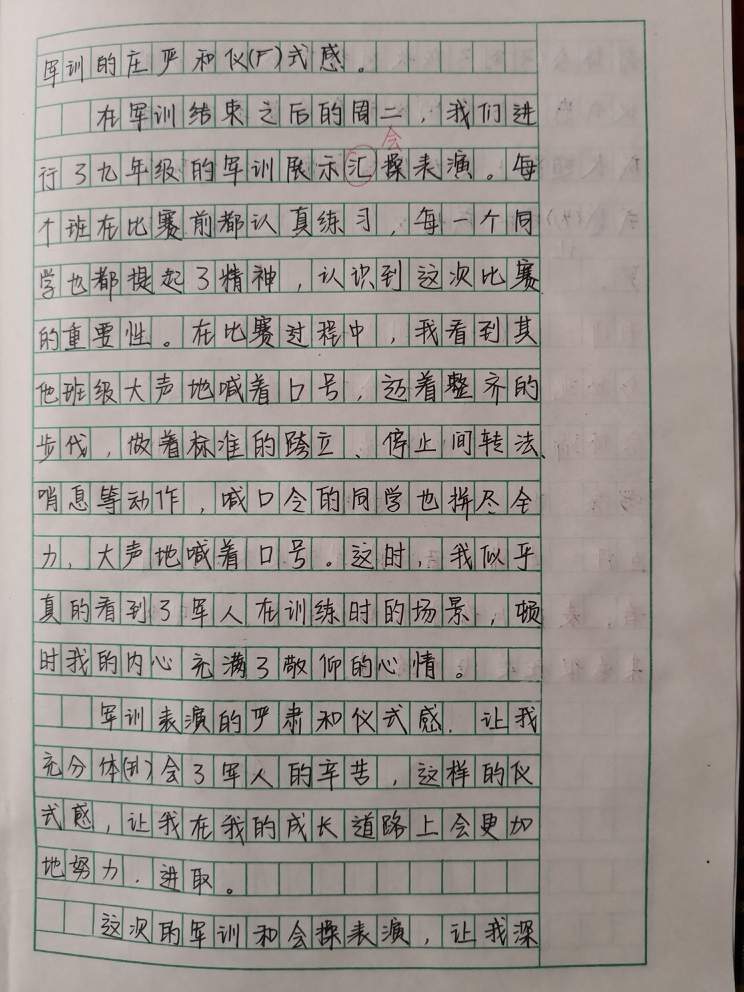 军训的庄严和仪(广)式感。
在军训结束之后的周二，我们进
会
行了九年级的军训展示汇操表演。每
个班在比赛前都认真练习，每一个同
学也都提起了精神，认识到这次比赛
的重要性。在比赛过程中，我看到其
他班级大声地喊着口号，迈着整齐的
步伐，做着标准的跨立、停止间转法、
哨息等动作，喊口令的同学也拼尽全
力，大声地喊着口号。这时，我似乎
真的看到了军人在训练时的场景，顿
时我的内心充满了敬仰的心情。
军训表演的严肃和仪式感，让我
充分体()会了军人的辛苦，这样的仪
式感，让我在我的成长道路上会更加
地努力、进取。
这次的军训和会操表演，让我深